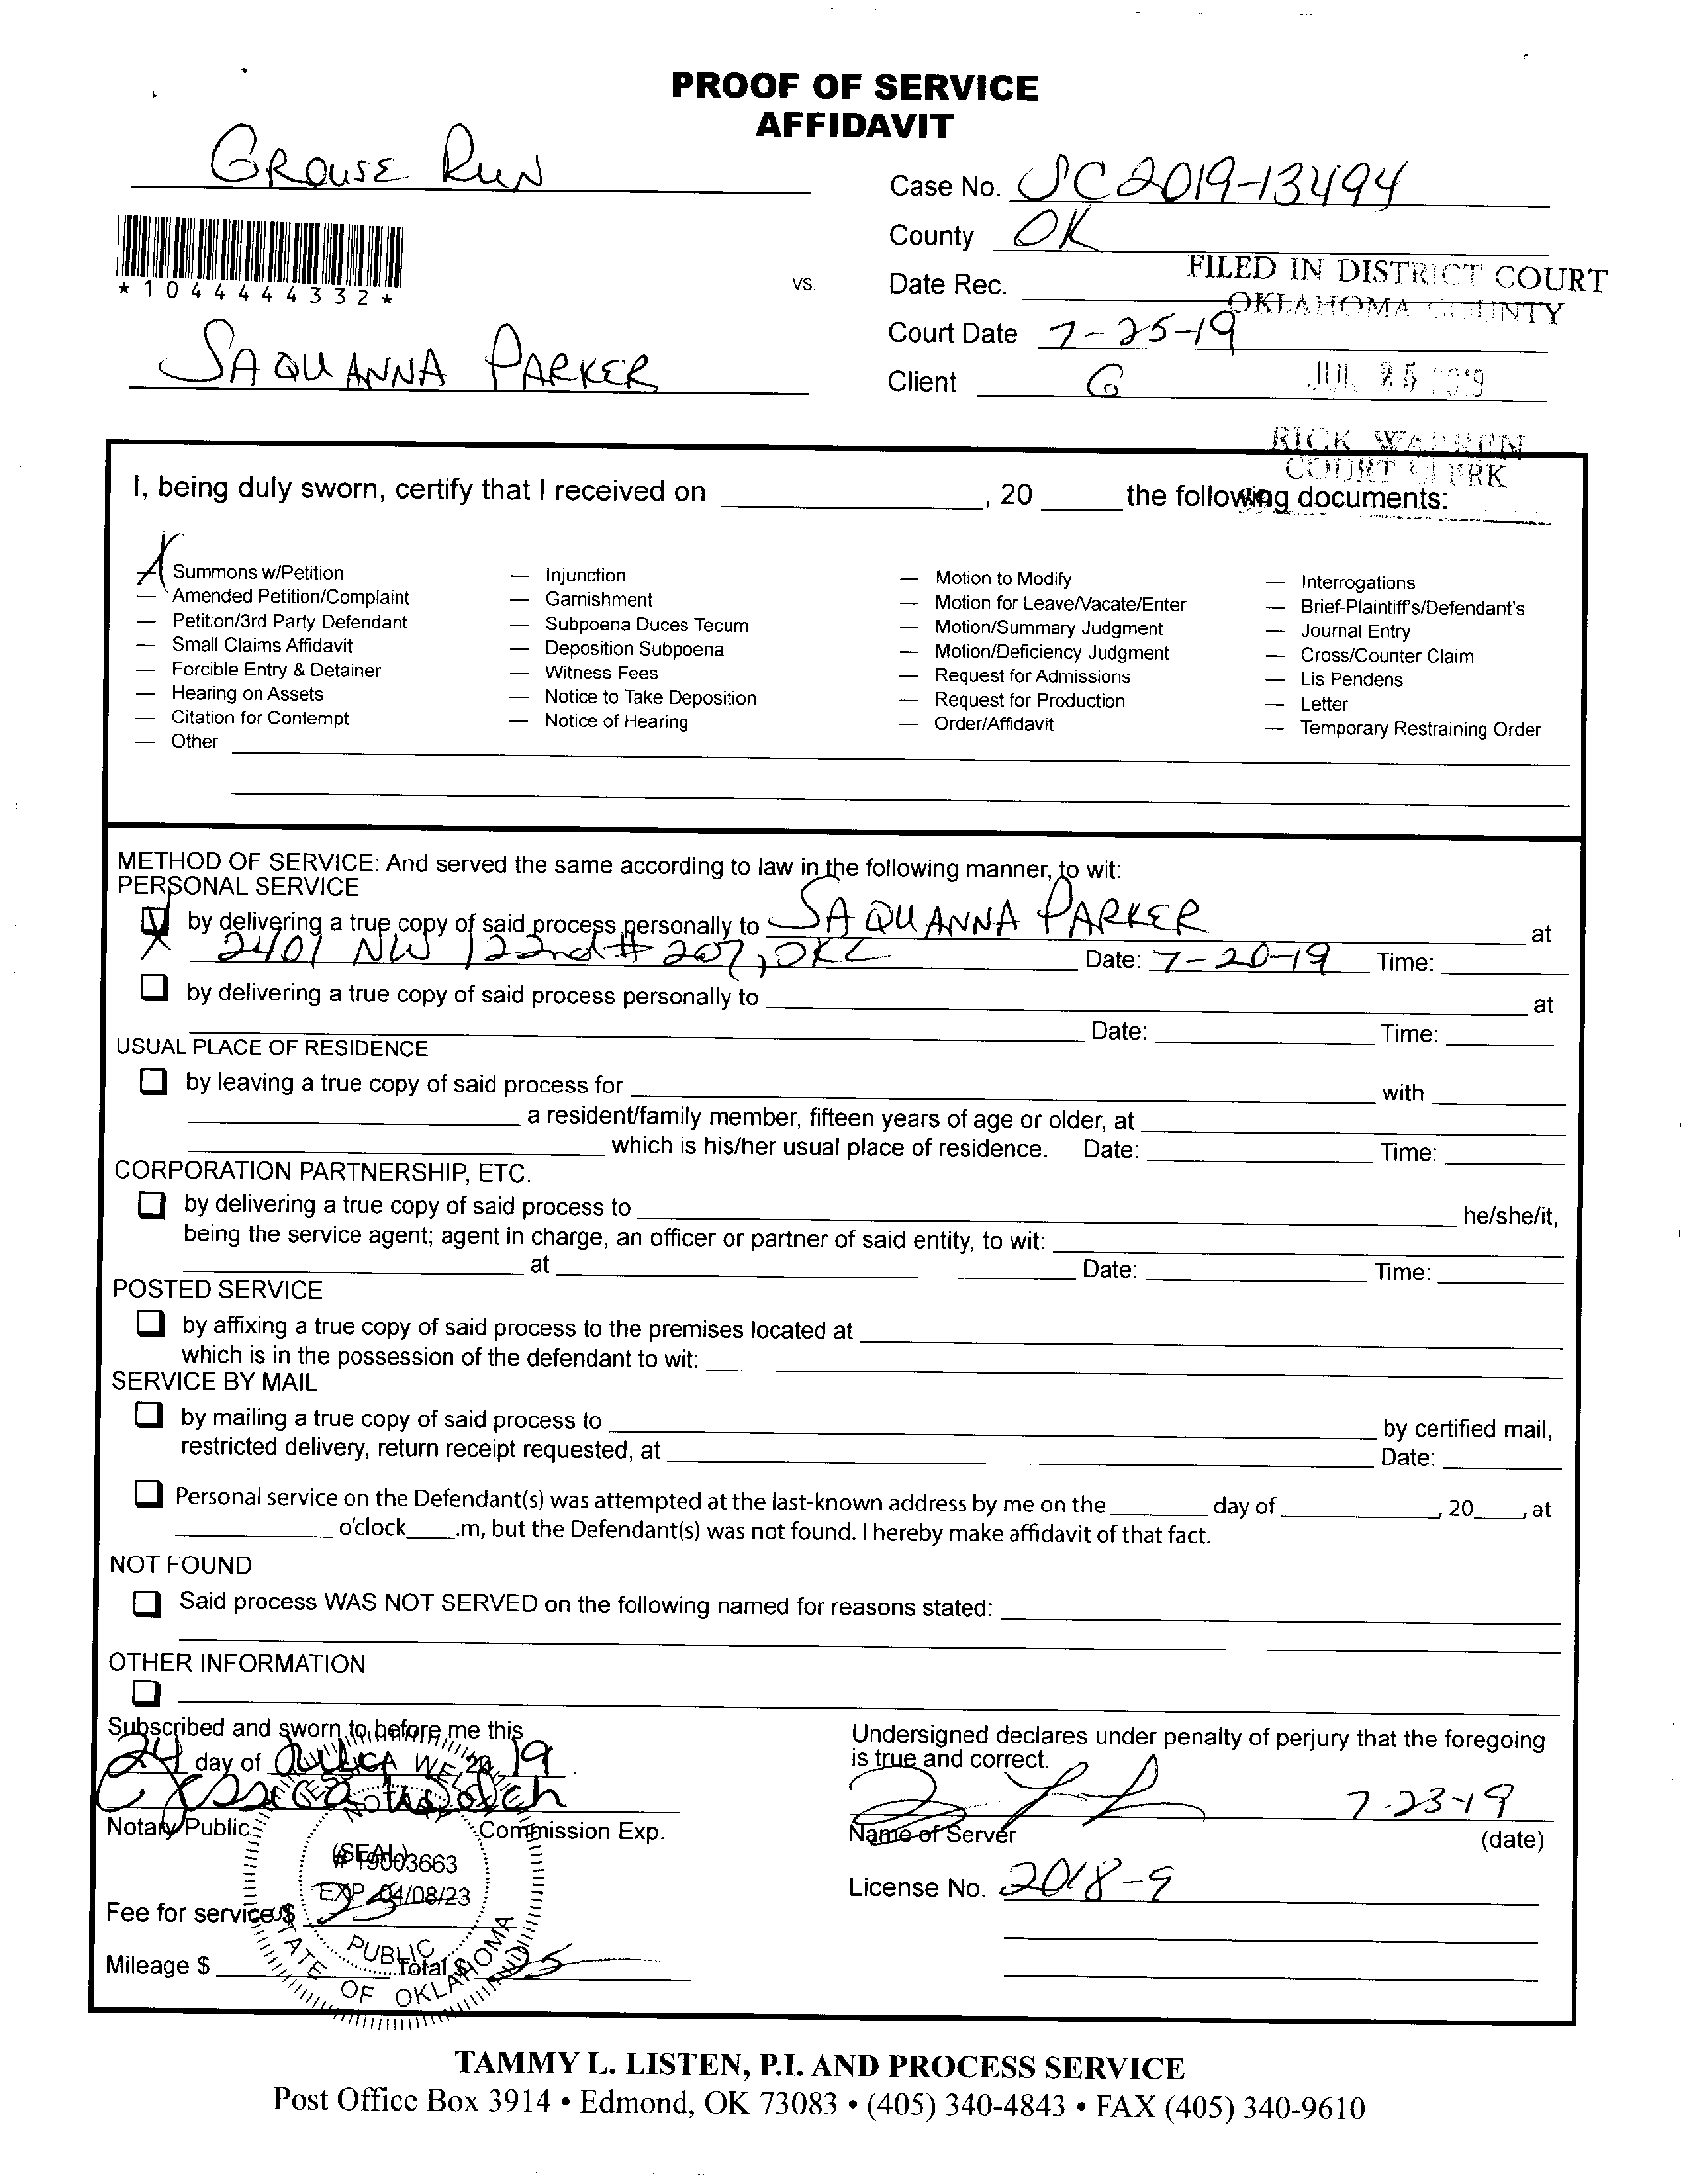 PROOF OF SERVICE
AFFIDAVIT
GROUSE RUN
Case No. SC2019-13494
County OK
*1044444332*
vs.
Date Rec.
FILED IN DISTRICT COURT
OKLAHOMA COUNTY
Court Date 7-25-19
SAQUANNA PARKER
Client G
JUL 25 2019
RICK WARREN
COURT CLERK
I, being duly sworn, certify that I received on , 20 the following documents:
X Summons w/Petition
— Amended Petition/Complaint
— Petition/3rd Party Defendant
— Small Claims Affidavit
— Forcible Entry & Detainer
— Hearing on Assets
— Citation for Contempt
— Other
— Injunction
— Garnishment
— Subpoena Duces Tecum
— Deposition Subpoena
— Witness Fees
— Notice to Take Deposition
— Notice of Hearing
— Motion to Modify
— Motion for Leave/Vacate/Enter
— Motion/Summary Judgment
— Motion/Deficiency Judgment
— Request for Admissions
— Request for Production
— Order/Affidavit
— Interrogations
— Brief-Plaintiff's/Defendant's
— Journal Entry
— Cross/Counter Claim
— Lis Pendens
— Letter
— Temporary Restraining Order
METHOD OF SERVICE: And served the same according to law in the following manner, to wit:
PERSONAL SERVICE
by delivering a true copy of said process personally to SAQUANNA PARKER at
X 2401 NW 122nd # 207, OKC Date: 7-20-19 Time:
by delivering a true copy of said process personally to at
Date: Time:
USUAL PLACE OF RESIDENCE
by leaving a true copy of said process for with
a resident/family member, fifteen years of age or older, at
which is his/her usual place of residence. Date: Time:
CORPORATION PARTNERSHIP, ETC.
by delivering a true copy of said process to he/she/it,
being the service agent; agent in charge, an officer or partner of said entity, to wit:
at Date: Time:
POSTED SERVICE
by affixing a true copy of said process to the premises located at
which is in the possession of the defendant to wit:
SERVICE BY MAIL
by mailing a true copy of said process to by certified mail,
restricted delivery, return receipt requested, at Date:
Personal service on the Defendant(s) was attempted at the last-known address by me on the day of , 20 , at
o'clock .m, but the Defendant(s) was not found. I hereby make affidavit of that fact.
NOT FOUND
Said process WAS NOT SERVED on the following named for reasons stated:
OTHER INFORMATION
Subscribed and sworn to before me this
24 day of July 20 19
Jessica Welch
Notary Public Commission Exp.
JESSICA WELCH
NOTARY
(SEAL)
# 19003663
EXP. 04/08/23
PUBLIC
STATE OF OKLAHOMA
Fee for service $ 25
Mileage $ Total $ 25
Undersigned declares under penalty of perjury that the foregoing
is true and correct.
7-23-19
Name of Server (date)
License No. 2018-9
TAMMY L. LISTEN, P.I. AND PROCESS SERVICE
Post Office Box 3914 • Edmond, OK 73083 • (405) 340-4843 • FAX (405) 340-9610